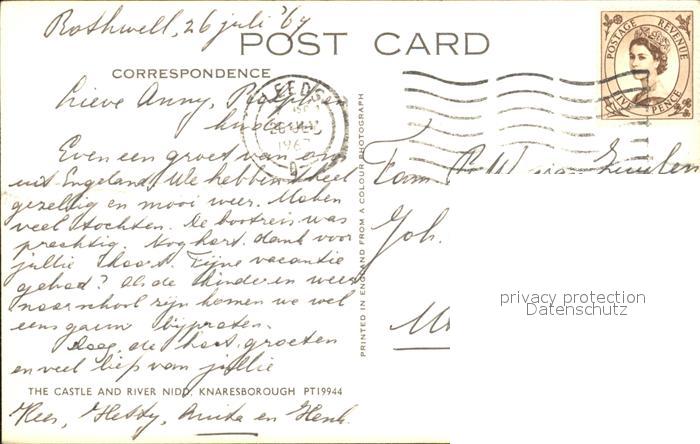 Rothwell, 26 juli '67
POST CARD
CORRESPONDENCE
POSTAGE REVENUE
FIVE PENCE
LEEDS
1967
Lieve Anny,
Even een groet van ons
uit Engeland. We hebben heel
gezellig en mooi weer. Maken
veel tochten. De bootreis was
prachtig. Nog hart. dank voor
jullie kaart. Fijne vacantie
gehad? Als de kinderen weer
naar school zijn komen we wel
eens gauw bijpraten.
Daag, de hart. groeten
en veel liefs van jullie
THE CASTLE AND RIVER NIDD, KNARESBOROUGH PT19944
Kees, Hetty, Anita en Henk.
PRINTED IN ENGLAND FROM A COLOUR PHOTOGRAPH
Fam.
Joh.
privacy protection
Datenschutz